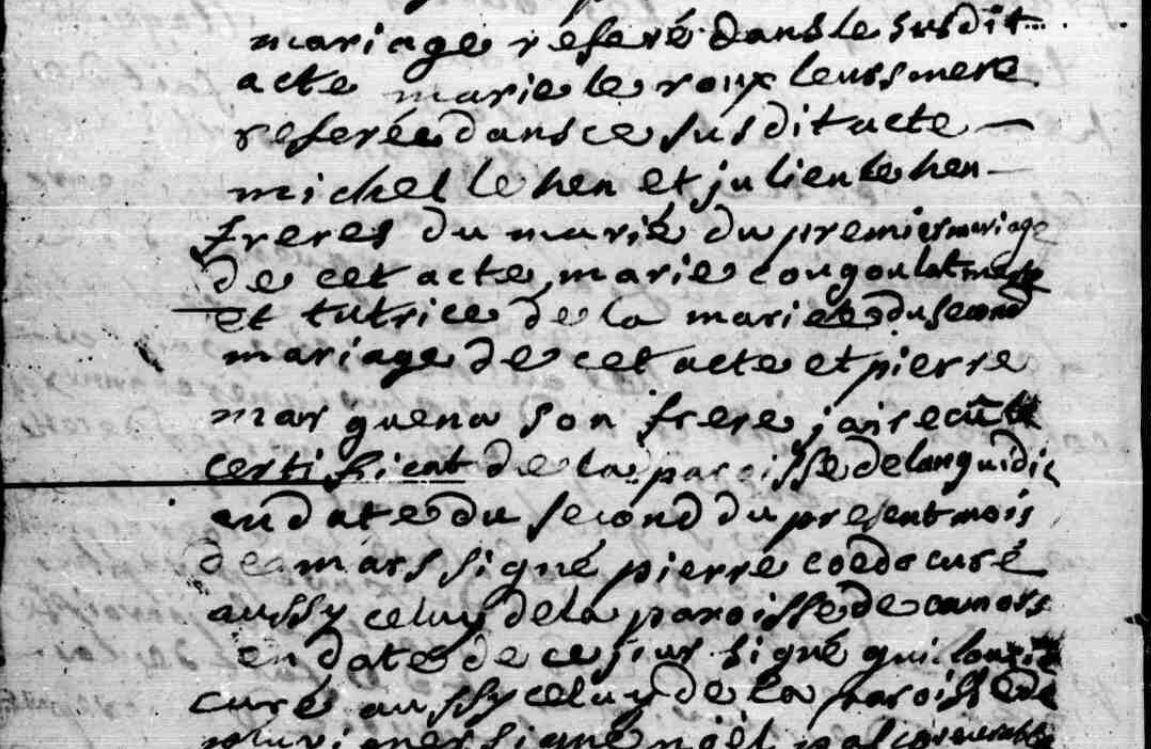 mariage referé dans le susdit
acte marie le roux leurs mere
referée dans ce susdit acte
michel le hen et julien le hen
freres du marié du premier mariage
de cet acte marie cougoulat mere
et tutrice de la mariée du second
mariage de cet acte et pierre
marguena son frere j'ai recû le
certificat de la paroisse de languidic
en date du second du present mois
de mars signé pierre coedo curé
aussy celuy de la paroisse de camors
en date de ce jour signé guil
curé aussy celuy de la paroisse de
pluvigner signé noël